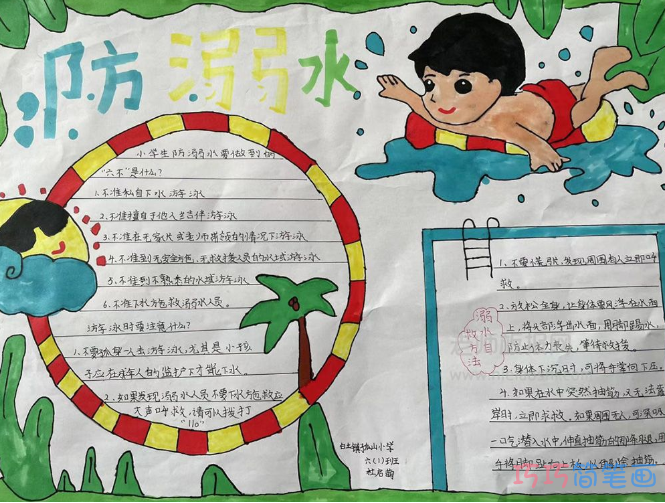 防溺水
小学生防溺水要做到的
“六不”是什么?
1.不准私自下水游泳
2.不准擅自于他人结伴游泳
3.不准在无家长或老师带领的情况下游泳
4.不准到无安全方施,无救援人员的水域游泳
5.不准到不熟悉的水域游泳
6.不准下水方包救溺水人员。
游泳时要注意什么?
1.不要孤单一人去游泳,尤其是小孩
子应在成年人的监护下才能下水。
2.如果发现溺水人员不要下水方包救应
大声呼救,请可以拨打
"110"
白土镇 山小学
六(1)班
溺水自救方法
1.不要慌张,发现周围有人立即呼
救。
2.放松全身,让身体漂浮在水面
上,将头部浮出水面,用脚踢水,
防止体力丧失,等待救援。
3.身体下沉时,可将手掌向下压。
4.如果在水中突然抽筋,又无法靠
岸时,立即求救。如果周围无人,可深吸
一口气潜入水中,伸直抽筋的那条腿,用
手将脚趾向上扳,以解除抽筋。
巧巧简笔画